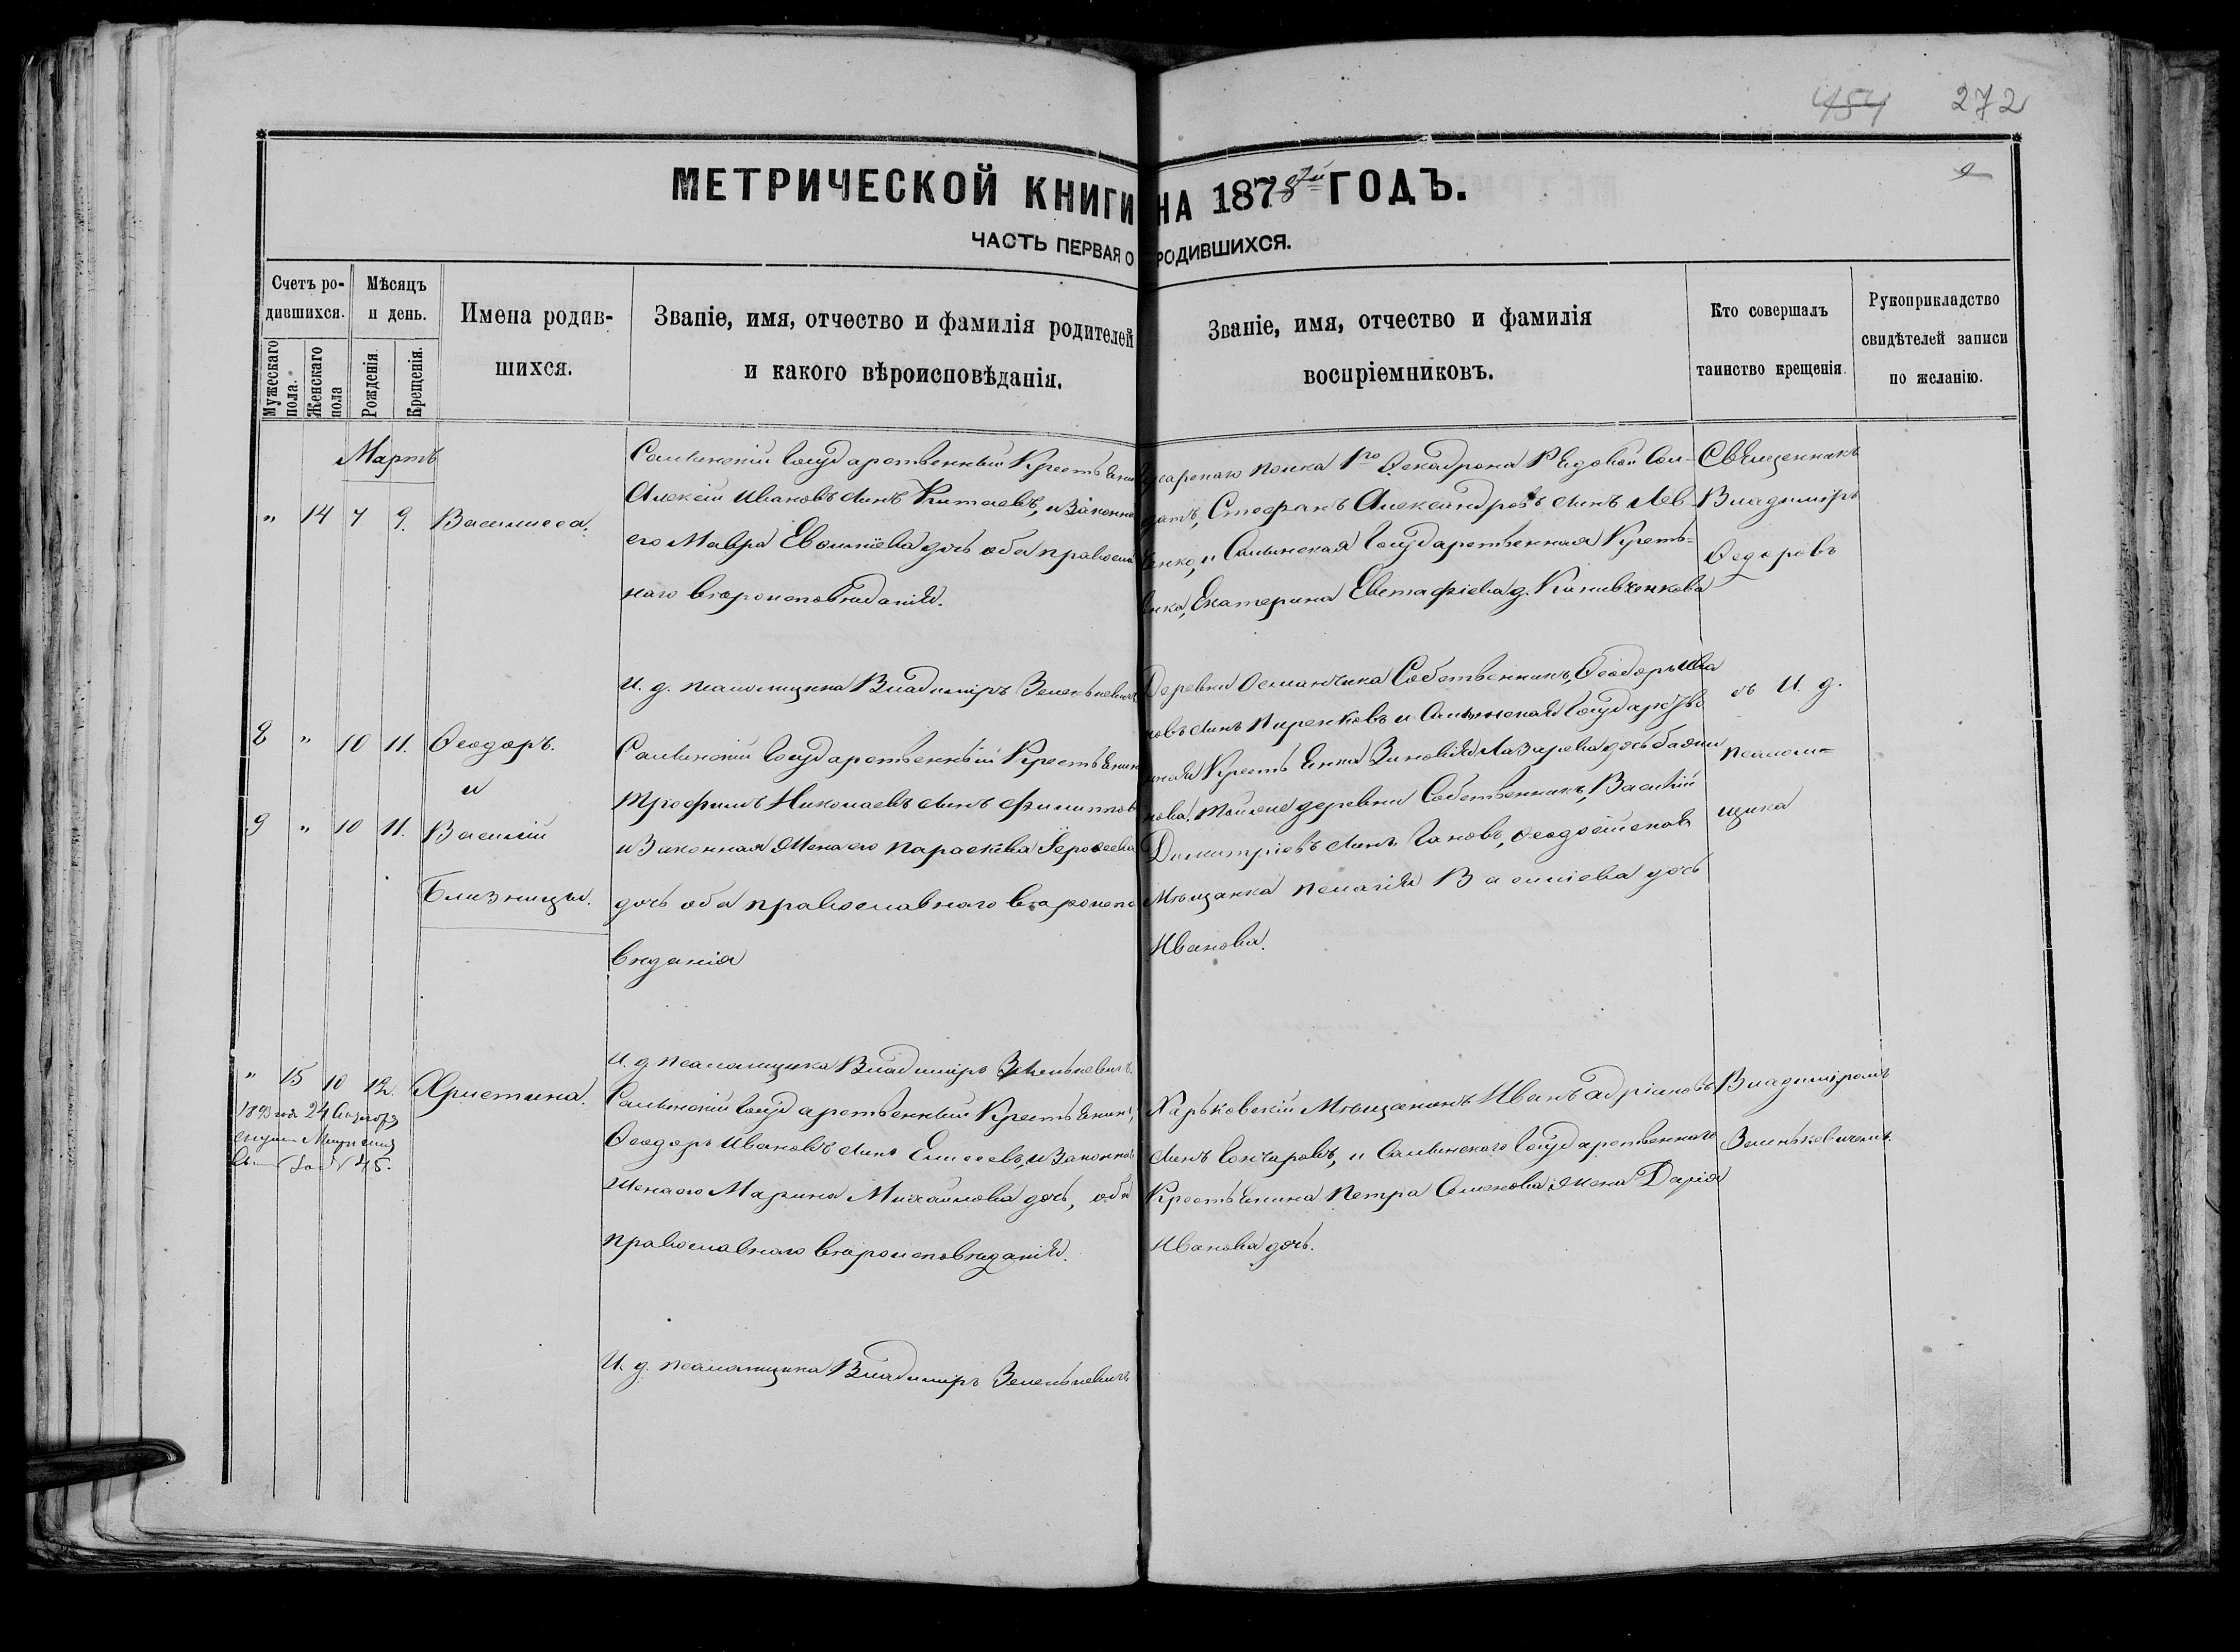 454 272
МЕТРИЧЕСКОЙ КНИГИ НА 1878 ГОДЪ.
ЧАСТЬ ПЕРВАЯ О РОДИВШИХСЯ.
Счетъ ро-
дившихся.
Мужескаго пола.
Женскаго пола
Мѣсяцъ
и день.
Рожденія.
Крещенія.
Имена родив-
шихся.
Званіе, имя, отчество и фамилія родителей
и какого вѣроисповѣданія.
Званіе, имя, отчество и фамилія
воспріемниковъ.
Кто совершалъ
таинство крещенія.
Рукоприкладство
свидѣтелей записи
по желанію.
Мартъ
" 14 7 9. Василисса.
Государственный Крестьянинъ
Алексій Ивановъ сынъ Китаевъ, и Законна
его Мавра дочь оба правосла
наго вѣроисповѣданія.
полка 1го Эскадрона Рядовой Сол-
датъ, Стефанъ Александровъ сынъ Лев
енко, и Государственная Кресть-
янка, Екатерина Евстафіева д.
Священникъ
Владиміръ
Ѳедоровъ
И. д. псаломщика Владиміръ Зенькевичъ
8 " 10 11. Ѳеодоръ.
и
9 " 10 11. Василій
Близнецы.
Государственный Крестьянинъ
Трофимъ Николаевъ сынъ Филиппов
и Законная Жена его Параскева
дочь оба православнаго вѣроиспо
вѣданія
Деревни Собственникъ, Ѳеодоръ Ива
новъ сынъ и Государстве
нная Крестьянка Зиновія Лазарева дочь
нова, той же деревни Собственникъ, Василій
Димитріевъ сынъ
Мѣщанка Пелагія Васильева дочь
Иванова.
съ И. д.
псалом-
щика
И. д. псаломщика Владиміръ Зенькевичъ.
" 15 10 12. Христина.
Государственный Крестьянинъ,
Ѳеодоръ Ивановъ сынъ Елисеевъ, и Законная
Жена его Марина Михайлова дочь, оба
православнаго вѣроисповѣданія.
Харьковскій Мѣщанинъ Иванъ Адріановъ
сынъ Гончаровъ, и Государственнаго
Крестьянина Петра Семенова Жена Дарія
Иванова дочь.
Владиміромъ
Зенькевичемъ.
1893 года 24
№ 45.
И. д. псаломщика Владиміръ Зенькевичъ